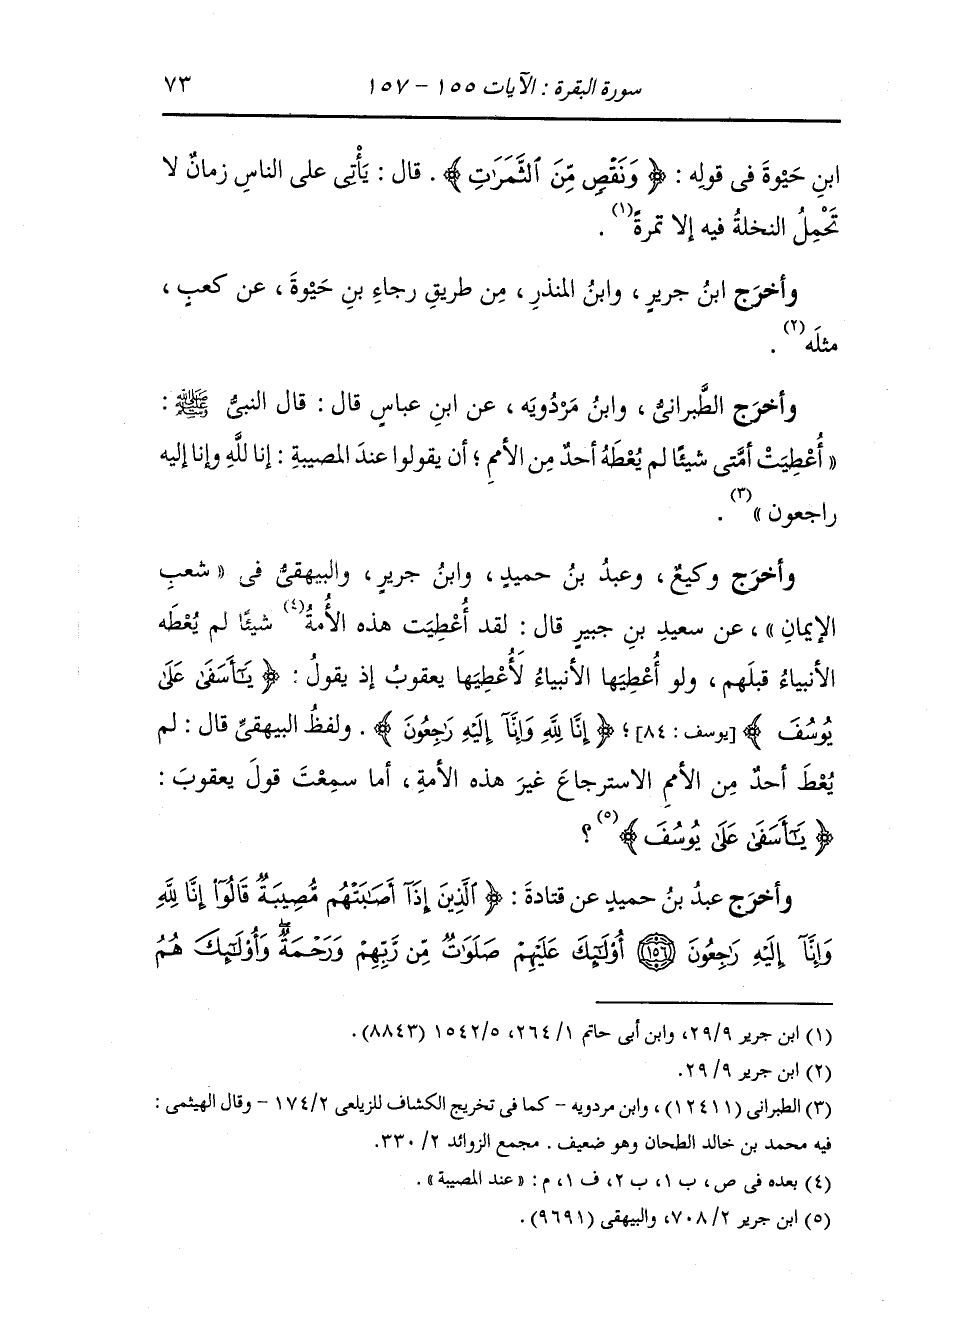 سورة البقرة : الآيات ١٥٥ - ١٥٧ ٧٣
ابنِ حَيْوةَ فى قولِه : ﴿ وَنَقْصٍ مِّنَ ٱلثَّمَرَٰتِ ﴾ . قال : يَأْتِى على الناسِ زمانٌ لا
تَحْمِلُ النخلةُ فيه إلا تمرةً(١) .
وأخرَج ابنُ جريرٍ ، وابنُ المنذرِ ، مِن طريقِ رجاءِ بنِ حَيْوةَ ، عن كعبٍ ،
مثلَه(٢) .
وأخرَج الطَّبرانىُّ ، وابنُ مَرْدُويَه ، عن ابنِ عباسٍ قال : قال النبىُّ ﷺ :
« أُعْطِيَتْ أمَّتى شيئًا لم يُعْطَهُ أحدٌ مِن الأممِ ؛ أن يقولوا عندَ المصيبةِ : إنا للَّهِ وإنا إليه
راجعون »(٣) .
وأخرَج وكيعٌ ، وعبدُ بنُ حميدٍ ، وابنُ جريرٍ ، والبيهقىُّ فى « شعبِ
الإيمانِ » ، عن سعيدِ بنِ جبيرٍ قال : لقد أُعْطِيَت هذه الأُمةُ(٤) شيئًا لم يُعْطَه
الأنبياءُ قبلَهم ، ولو أُعْطِيَها الأنبياءُ لَأُعْطِيَها يعقوبُ إذ يقولُ : ﴿ يَـٰٓأَسَفَىٰ عَلَىٰ
يُوسُفَ ﴾ [يوسف : ٨٤] ؛ ﴿ إِنَّا لِلَّهِ وَإِنَّآ إِلَيْهِ رَٰجِعُونَ ﴾ . ولفظُ البيهقىِّ قال : لم
يُعْطَ أحدٌ مِن الأممِ الاسترجاعَ غيرَ هذه الأمةِ ، أما سمِعْتَ قولَ يعقوبَ :
﴿ يَـٰٓأَسَفَىٰ عَلَىٰ يُوسُفَ ﴾(٥) ؟
وأخرَج عبدُ بنُ حميدٍ عن قتادةَ : ﴿ ٱلَّذِينَ إِذَآ أَصَـٰبَتْهُم مُّصِيبَةٌ قَالُوٓا۟ إِنَّا لِلَّهِ
وَإِنَّآ إِلَيْهِ رَٰجِعُونَ ١٥٦ أُو۟لَـٰٓئِكَ عَلَيْهِمْ صَلَوَٰتٌ مِّن رَّبِّهِمْ وَرَحْمَةٌ ۖ وَأُو۟لَـٰٓئِكَ هُمُ
(١) ابن جرير ٢٩/٩، وابن أبى حاتم ١/ ٢٦٤، ١٥٤٢/٥ (٨٨٤٣).
(٢) ابن جرير ٩/ ٢٩.
(٣) الطبرانى (١٢٤١١) ، وابن مردويه - كما فى تخريج الكشاف للزيلعى ١٧٤/٢ - وقال الهيثمى :
فيه محمد بن خالد الطحان وهو ضعيف . مجمع الزوائد ٢/ ٣٣٠.
(٤) بعده فى ص، ب ١، ب ٢، ف ١، م : «عند المصيبة» .
(٥) ابن جرير ٢/ ٧٠٨، والبيهقى (٩٦٩١).